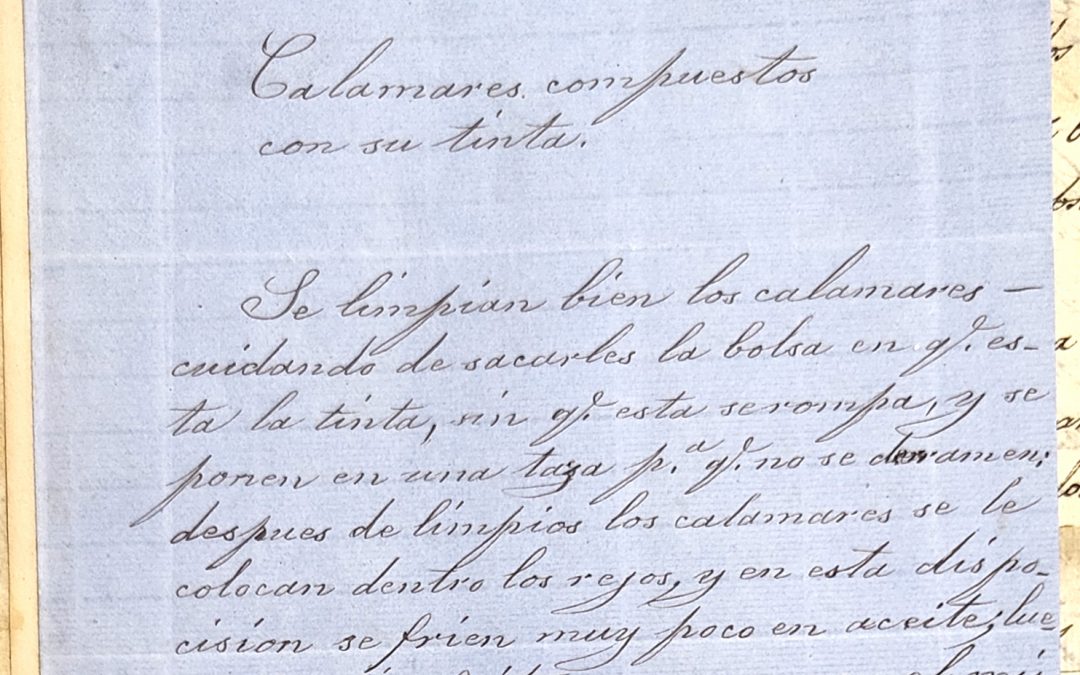 Calamares compuestos
con su tinta.
Se limpian bien los calamares —
cuidando de sacarles la bolsa en qᵉ. es-
ta la tinta, sin qᵉ. esta serompa, y se
ponen en una taza p.ᵃ qᵉ. no se derramen;
despues de limpios los calamares se le
colocan dentro los rejos, y en esta dispo-
cision se frien muy poco en aceite; lue-